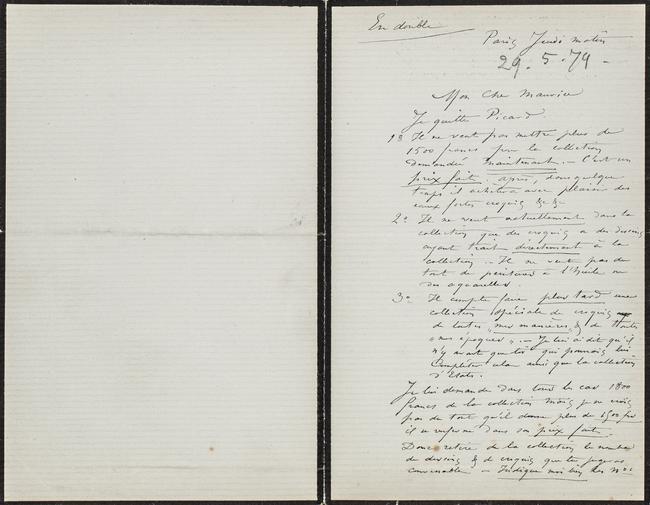 En double
Paris Jeudi matin
29.5.79 -
Mon cher Maurice
Je quitte Picard.
1º Il ne veut pas mettre plus de
1500 francs pour la collection
demandée maintenant. - C'est un
prix fait. après, dans quelque
temps il achètera avec plaisir des
eaux fortes croquis &c &c
2º Il ne veut actuellement dans la
collection que des croquis & des dessins
ayant trait directement à la
collection. - Il ne veut pas du
tout de peintures à l'huile ou
des aquarelles.
3º Il compte faire plus tard une
collection spéciale de croquis
de toutes "mes manières" & de toutes
"mes époques". - Je lui ai dit qu'il
n'y avait que toi qui pourrais lui
compléter cela ainsi que la collection
d'Etats.
Je lui demande dans tous les cas 1800
francs de la collection mais je ne crois
pas du tout qu'il donne plus de 1500 frs
il se renferme dans son prix fait.
Donc retire de la collection le nombre
de dessins & de croquis que tu jugeras
convenable - Indique moi bien les nos